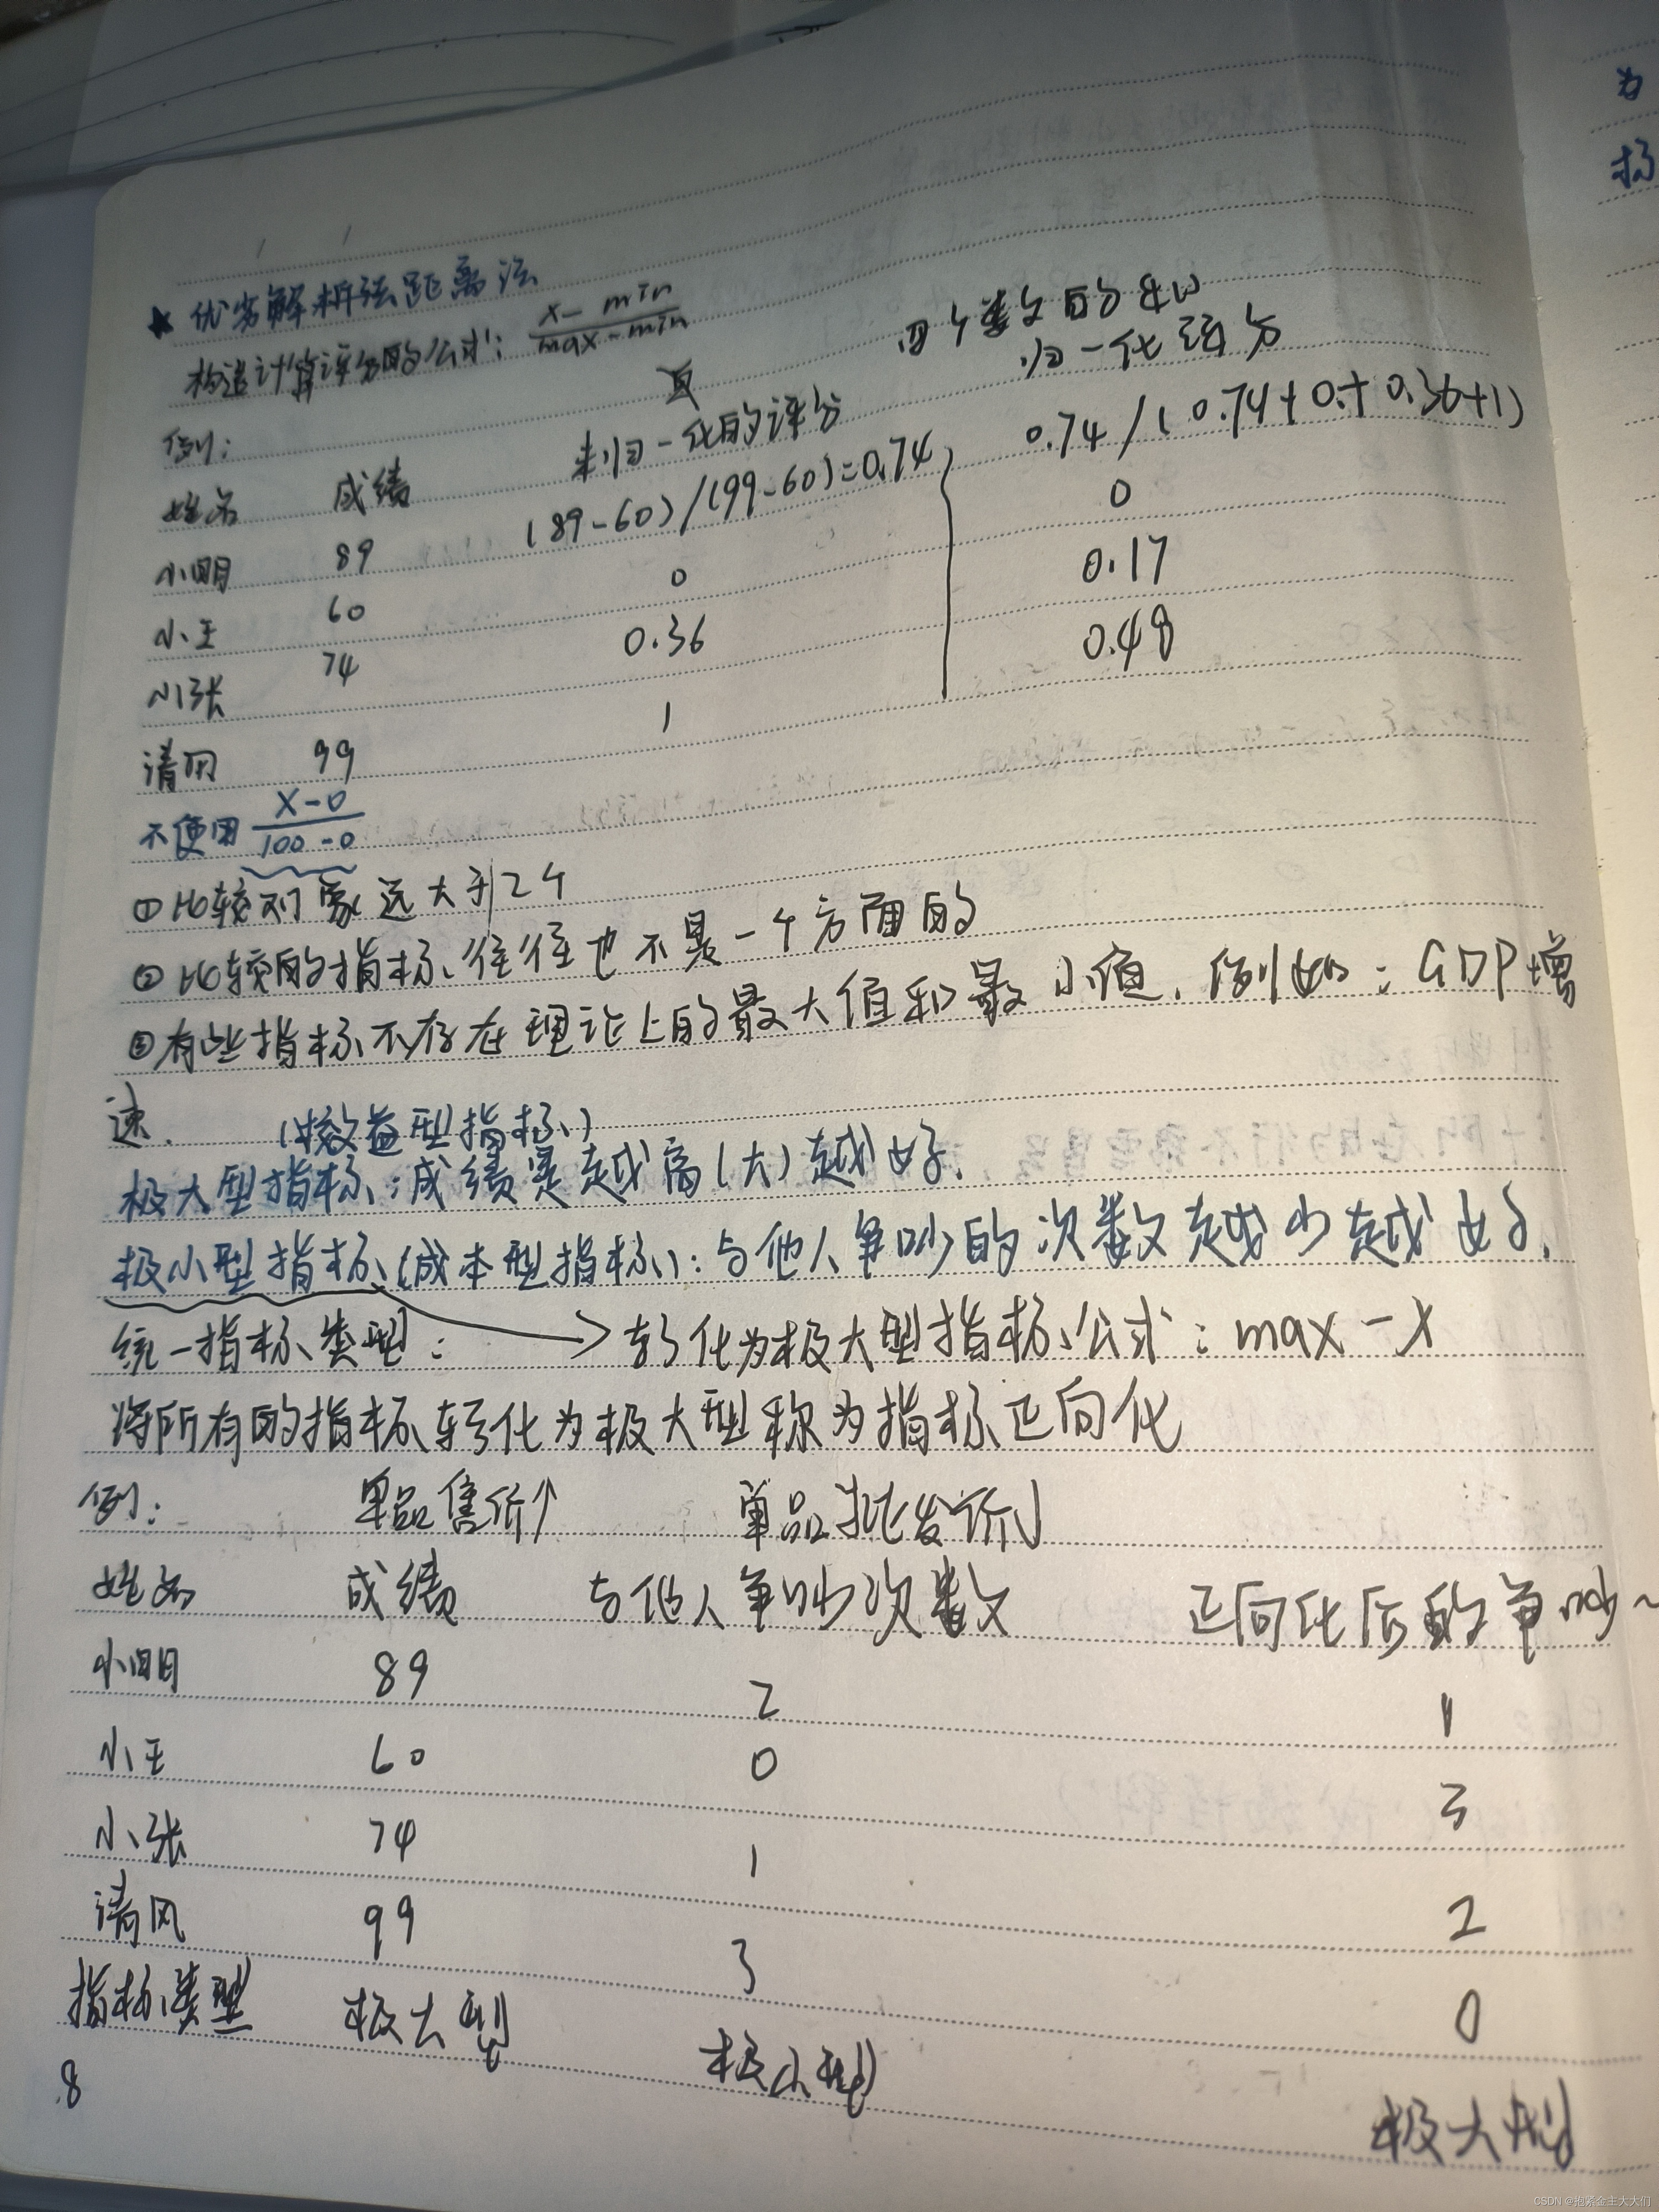 ★ 优劣解析法距离法
构造计算评分的公式: x-min / max-min
例:
姓名 成绩 未归一化的评分 归一化评分
小明 89 (89-60)/(99-60)=0.74 0.74/(0.74+0+0.36+1)
小王 60 0 0
小张 74 0.36 0.17
清风 99 1 0.48
不使用 x-0 / 100-0
①比较对象远大于2个
②比较的指标往往也不是一个方面的
③有些指标不存在理论上的最大值和最小值,例如:GDP增
速.
(效益型指标)
极大型指标:成绩是越高(大)越好.
极小型指标(成本型指标):与他人争吵的次数越少越好.
统一指标类型: → 转化为极大型指标公式:max-x
将所有的指标转化为极大型称为指标正向化
例: 单品售价↑ 单品批发价↓
姓名 成绩 与他人争吵次数 正向化后的争吵~
小明 89 2 1
小王 60 0 3
小张 74 1 2
清风 99 3 0
指标类型 极大型 极小型 极大型
8
为
标
CSDN @抱紧金主大大们